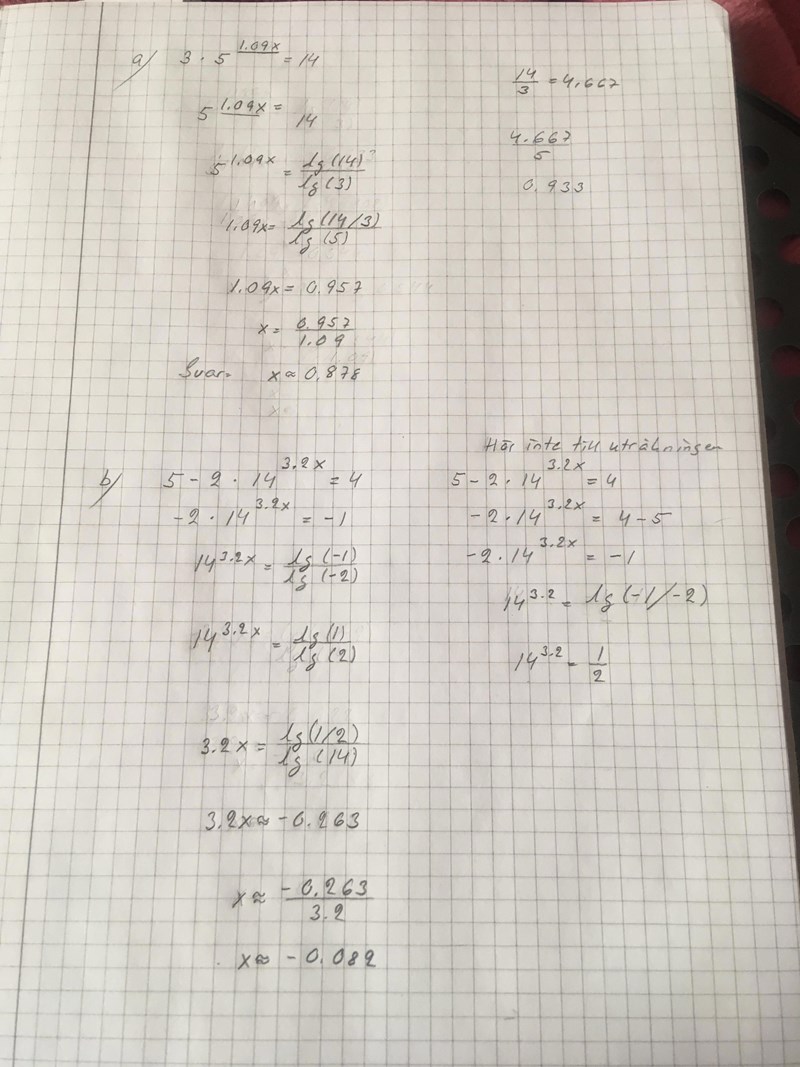 a) 3 · 5^1.09x = 14
5^1.09x = 14
5^1.09x = lg(14)/lg(3)
1.09x = lg(14/3)/lg(5)
1.09x = 0.957
x = 0.957/1.09
Svar: x ≈ 0.878
14/3 = 4.667
4.667/5
0.933
b) 5 - 2 · 14^3.2x = 4
-2 · 14^3.2x = -1
14^3.2x = lg(-1)/lg(-2)
14^3.2x = lg(1)/lg(2)
3.2x = lg(1/2)/lg(14)
3.2x ≈ -0.263
x ≈ -0.263/3.2
x ≈ -0.082
Hör inte till uträkningen
5 - 2 · 14^3.2x = 4
-2 · 14^3.2x = 4 - 5
-2 · 14^3.2x = -1
14^3.2 = lg(-1/-2)
14^3.2 = 1/2